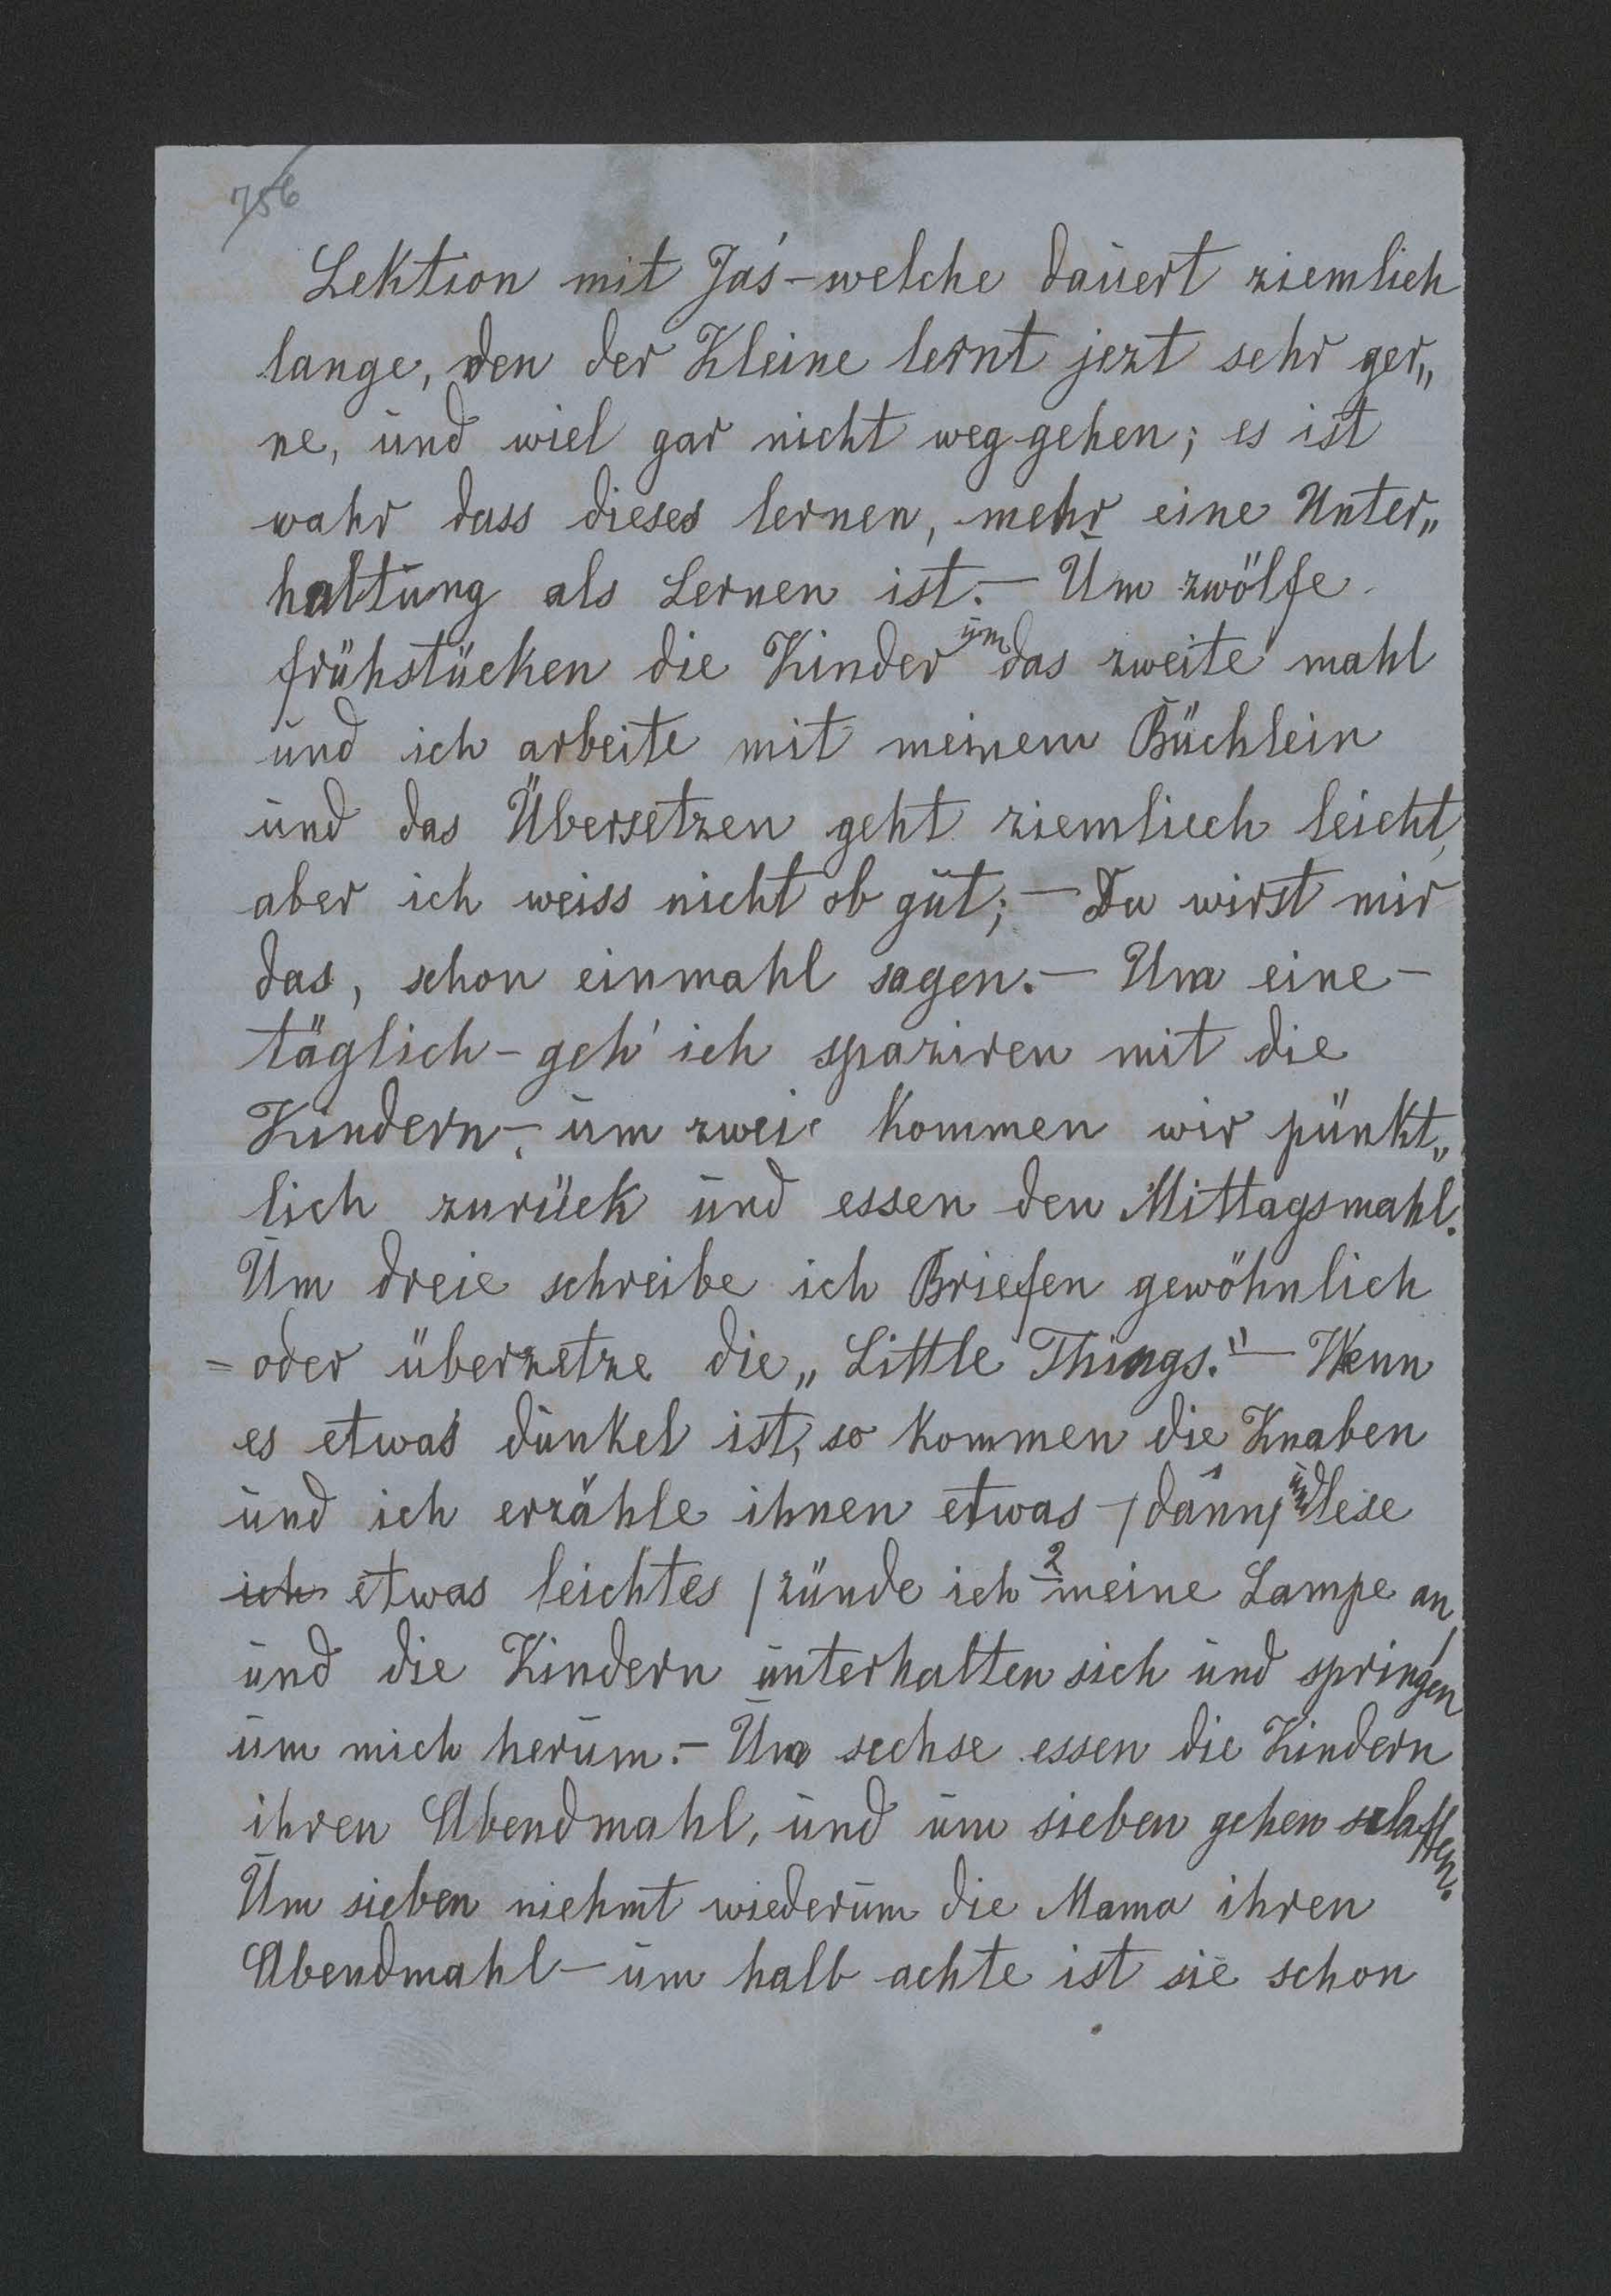 756
Lektion mit Jaś – welche dauert ziemlich
lange, den der Kleine lernt jezt sehr ger„
ne, und wiel gar nicht weg gehen; es ist
wahr dass dieses lernen, mehr eine Unter„
haltung als Lernen ist. – Um zwölfe
frühstücken die Kinder um das zweite mahl
und ich arbeite mit meinem Büchlein
und das Übersetzen geht ziemlich leicht,
aber ich weiss nicht ob gut; – Du wirst mir
das, schon einmahl sagen. – Um eine –
täglich – geh' ich spaziren mit die
Kindern –, um zwei kommen wir pünkt„
lich zurück und essen den Mittagsmahl.
Um dreie schreibe ich Briefen gewöhnlich
= oder überzetze die „Little Things." – Wenn
es etwas dunkel ist, so kommen die Knaben
und ich erzähle ihnen etwas – / dann / und lese
ich etwas leichtes / zünde ich 2 meine Lampe an /
und die Kindern unterhalten sich und springen
um mich herum. – Um sechse essen die Kindern
ihren Abendmahl, und um sieben gehen schlaffen.
Um sieben niehmt wiederum die Mama ihren
Abendmahl – um halb achte ist sie schon